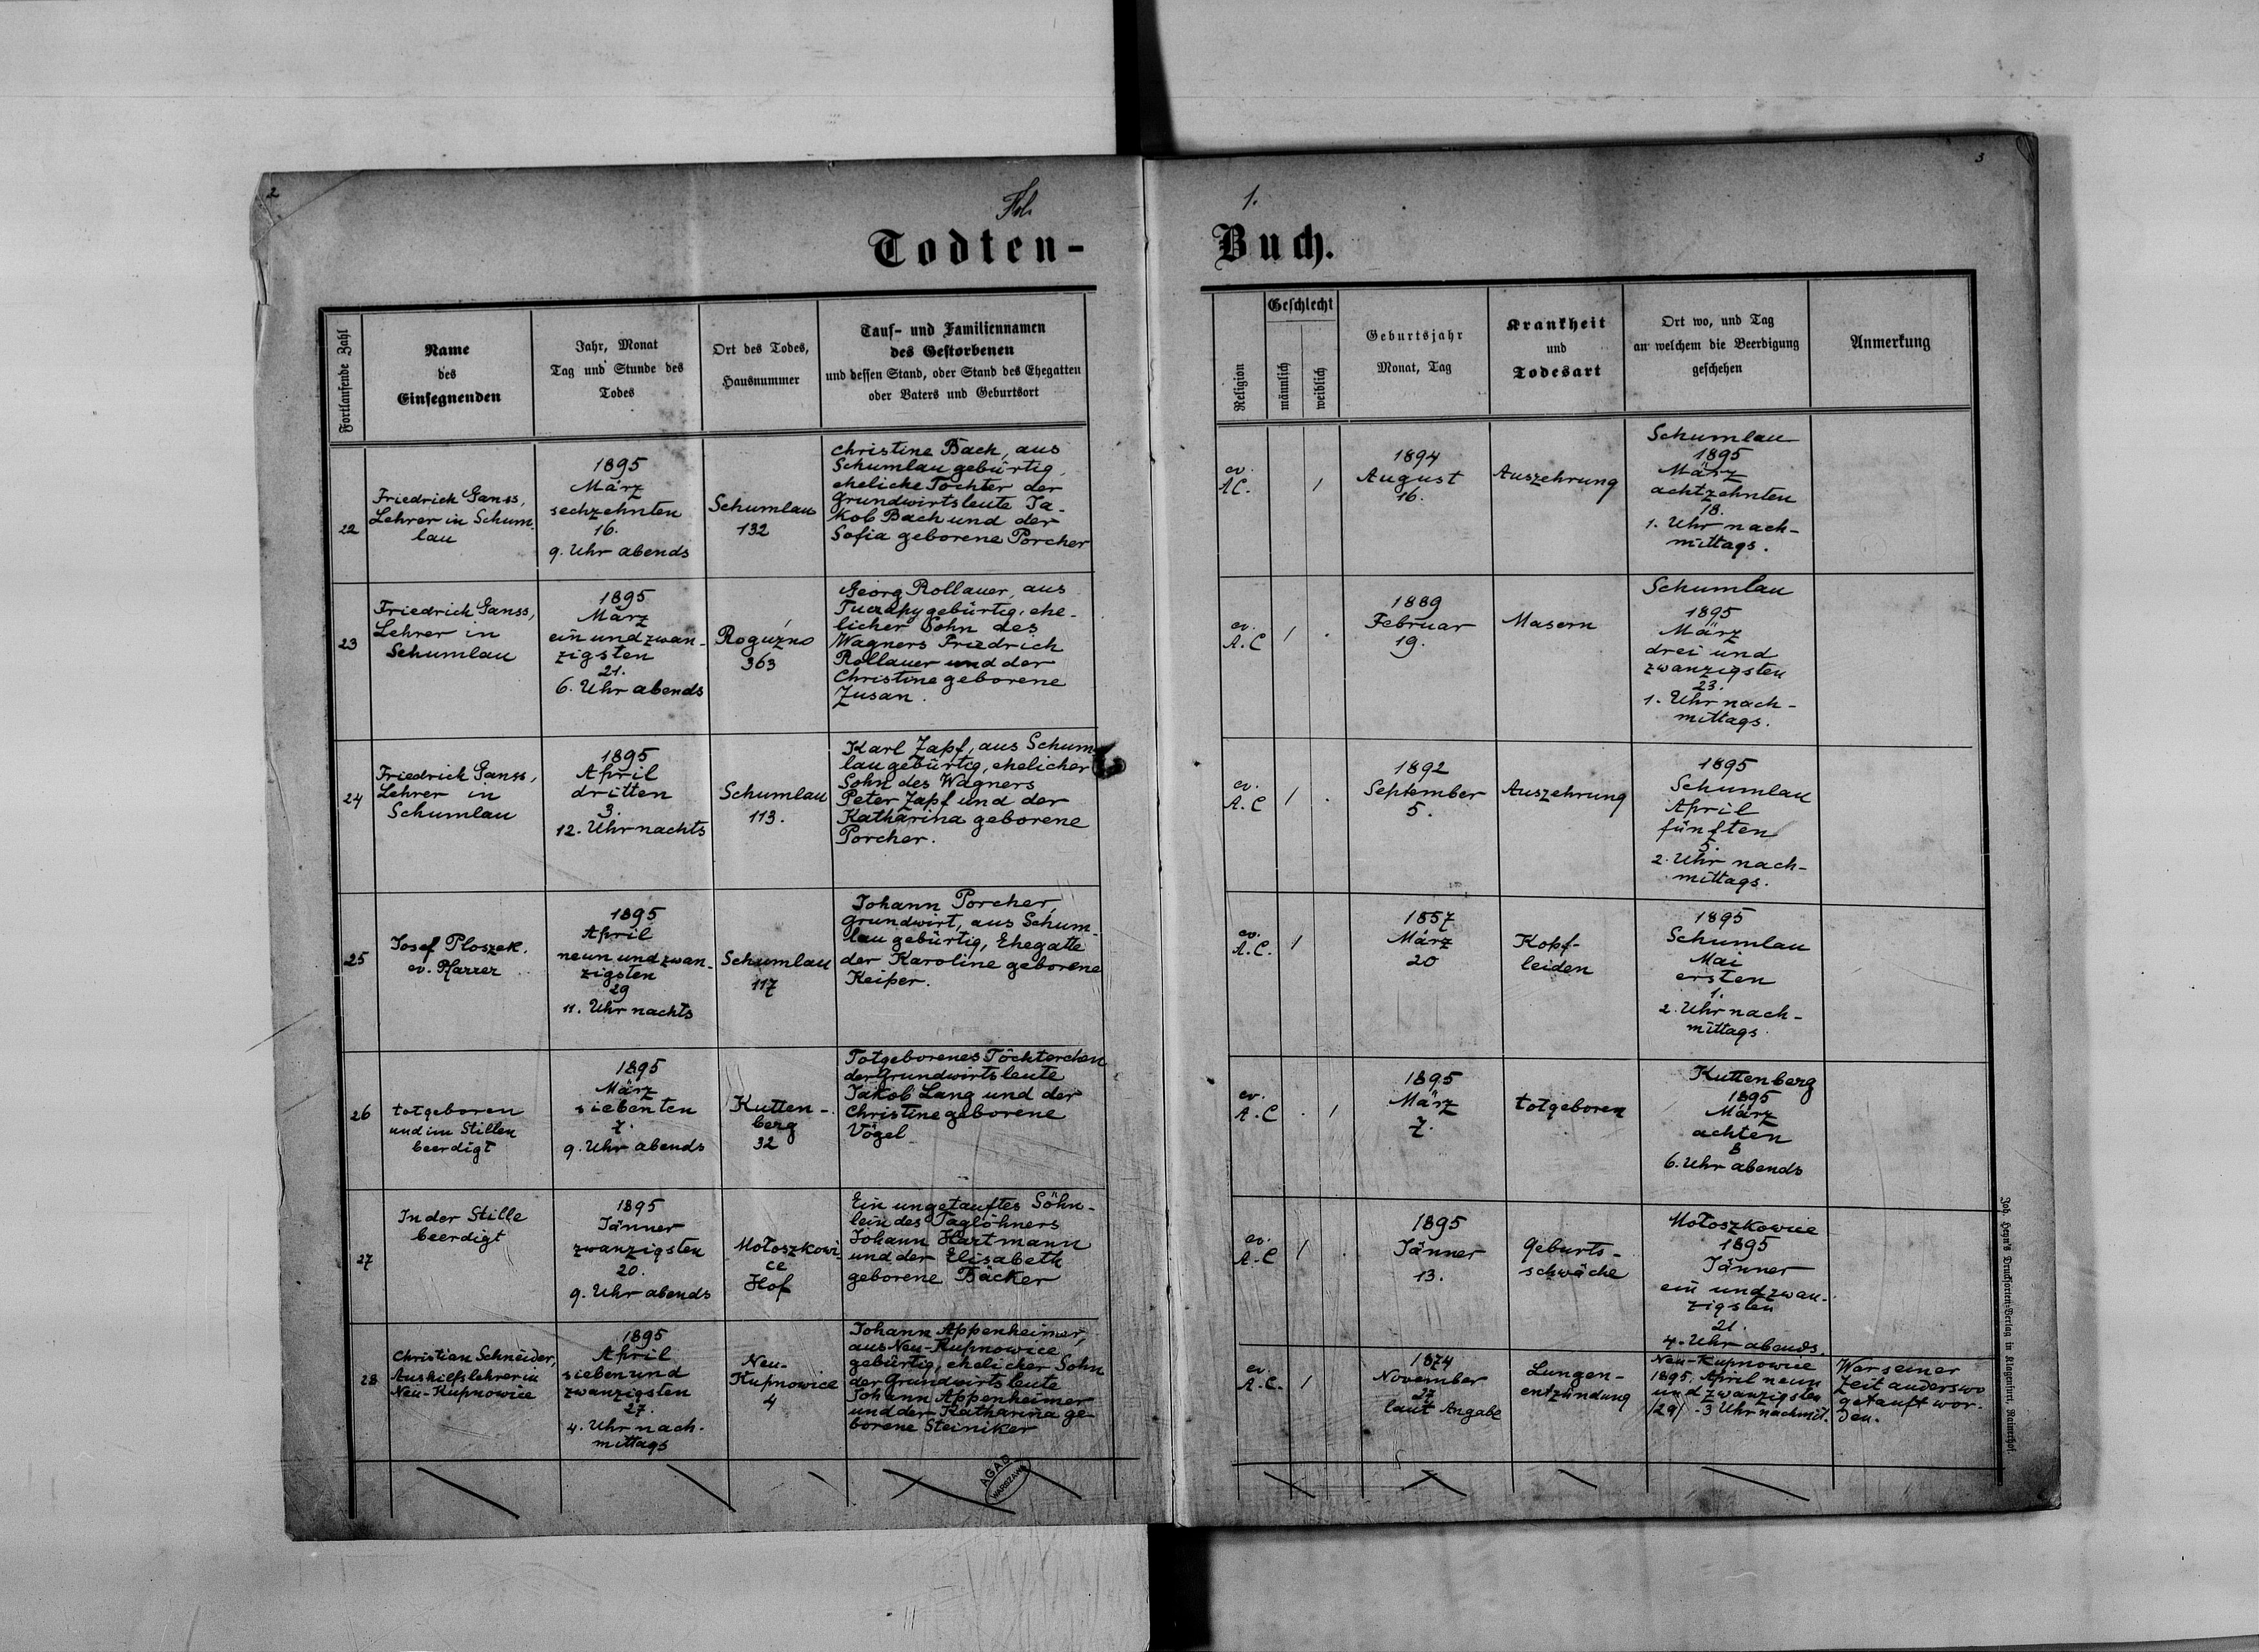 2
3
Fol.
1.
Todten-
Buch.
Fortlaufende Zahl
Name
des
Einsegnenden
Jahr, Monat
Tag und Stunde des
Todes
Ort des Todes,
Hausnummer
Tauf- und Familiennamen
des Gestorbenen
und dessen Stand, oder Stand des Ehegatten
oder Vaters und Geburtsort
Religion
Geschlecht
männlich
weiblich
Geburtsjahr
Monat, Tag
Krankheit
und
Todesart
Ort wo, und Tag
an welchem die Beerdigung
geschehen
Anmerkung
22
Friedrich Ganss,
Lehrer in Schum-
lau
1895
März
sechzehnten
16.
9. Uhr abends
Schumlau
132
Christine Bach, aus
Schumlau gebürtig,
eheliche Tochter der
Grundwirtsleute Ja-
kob Bach und der
Sofia geborene Porcher
ev.
A.C.
1
1894
August
16.
Auszehrung
Schumlau
1895
März
achtzehnten
18.
1. Uhr nach-
mittags.
23
Friedrich Ganss,
Lehrer in
Schumlau
1895
März
ein und zwan-
zigsten
21.
6. Uhr abends
Roguźno
363
Georg Rollauer, aus
Tuczapy gebürtig, ehe-
licher Sohn des
Wagners Friedrich
Rollauer und der
Christine geborene
Zusan.
ev.
A.C
1
1889
Februar
19.
Masern
Schumlau
1895
März
drei und
zwanzigsten
23.
1. Uhr nach-
mittags.
24
Friedrich Ganss,
Lehrer in
Schumlau
1895
April
dritten
3.
12. Uhr nachts
Schumlau
113.
Karl Zapf, aus Schum-
lau gebürtig, ehelicher
Sohn des Wagners
Peter Zapf und der
Katharina geborene
Porcher.
ev.
A.C
1
1892
September
5.
Auszehrung
1895
Schumlau
April
fünften
5.
2. Uhr nach-
mittags.
25
Josef Ploszek.
ev. Pfarrer
1895
April
neun und zwan-
zigsten
29
11. Uhr nachts
Schumlau
117
Johann Porcher,
Grundwirt, aus Schum-
lau gebürtig, Ehegatte
der Karoline geborene
Keiper.
ev.
A.C.
1
1857
März
20
Kopf-
leiden
1895
Schumlau
Mai
ersten
1.
2. Uhr nach-
mittags.
26
totgeboren
und im Stillen
beerdigt
1895
März
siebenten
7.
9. Uhr abends
Kutten-
berg
32
Totgeborenes Töchterchen
der Grundwirtsleute
Jakob Lang und der
Christine geborene
Vögel
ev.
A.C
1
1895
März
7.
totgeboren
Kuttenberg
1895
März
achten
8
6. Uhr abends
27
In der Stille
beerdigt
1895
Jänner
zwanzigsten
20.
9. Uhr abends
Mołoszkowi
ce
Hof
Ein ungetauftes Söhn-
lein des Taglöhners
Johann Hartmann
und der Elisabeth
geborene Bäcker
ev.
A.C
1
1895
Jänner
13.
Geburts-
schwäche
Mołoszkowice
1895
Jänner
ein und zwan-
zigsten
21.
4. Uhr abends.
28
Christian Schneider,
Aushilfslehrer in
Neu-Kupnowice
1895
April
sieben und
zwanzigsten
27.
4. Uhr nach-
mittags
Neu-
Kupnowice
4
Johann Appenheimer,
aus Neu-Kupnowice
gebürtig, ehelicher Sohn
der Grundwirtsleute
Johann Appenheimer
und der Katharina ge-
borene Steiniker
ev.
A.C.
1
1874
November
27
laut Angabe
Lungen-
entzündung
Neu-Kupnowice
1895. April neun
und zwanzigsten
/29/. 3 Uhr nachmit.
War seiner
Zeit anderswo
getauft wor-
den.
AGAD
WARSZAWA
Joh. Heyn's Drucksorten-Verlag in Klagenfurt, Rainerhof.